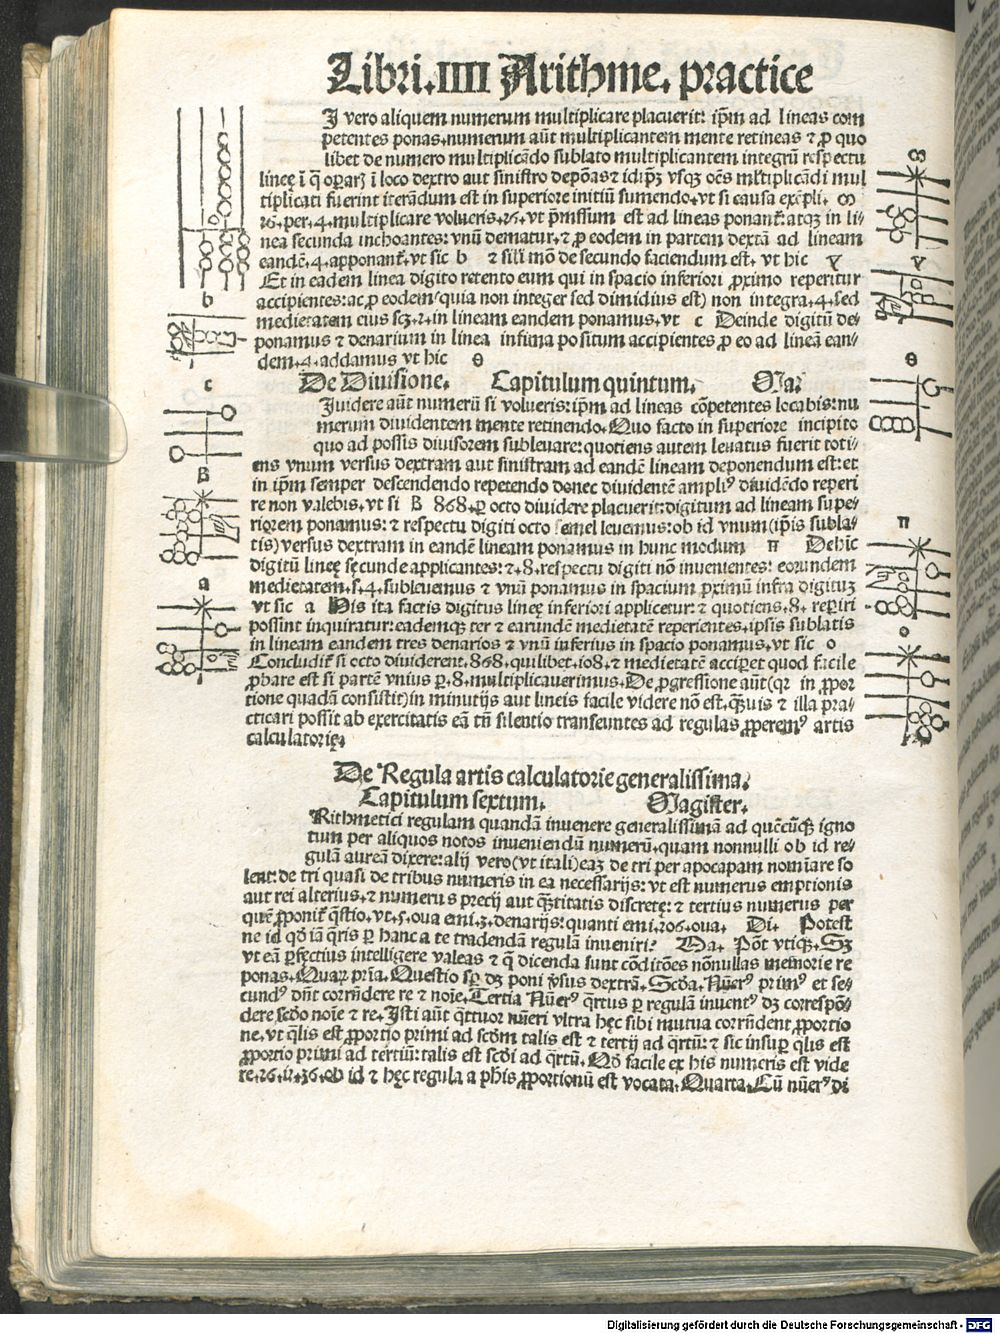 Libri.IIII Arithme. practice
I vero aliquem numerum multiplicare placuerit: ip̄m ad lineas com
petentes ponas.numerum aūt multiplicantem mente retineas ⁊ ꝓ quo
libet de numero multiplicādo sublato multiplicantem integrū respectu
lineę ī q̄ oꝑarꝭ ī loco dextro aut sinistro depōas ⁊ idip̄ꝫ vsqꝫ oēs mltiplicādi mul
tiplicati fuerint iterādum est in superiore initiū sumendo.vt si causa exēpli.
26.per.4.multiplicare volueris.26.vt p̄missum est ad lineas ponant᷑:atqꝫ in li⸗
nea secunda inchoantes:vnū dematur.⁊ ꝓ eodem in partem dextā ad lineam
eandē.4.apponant᷑.vt sic b ⁊ sili mō de secundo faciendum est. vt hic
Et in eadem linea digito retento eum qui in spacio inferiori ꝓximo reperitur
accipientes:ac ꝓ eodem(quia non integer sed dimidius est) non integra.4.sed
medietatem eius scꝫ.2.in lineam eandem ponamus.vt c Deinde digitū de⸗
ponamus ⁊ denarium in linea infima positum accipientes ꝓ eo ad lineā ean⸗
dem.4.addamus vt hic θ
De Diuisione. Capitulum quintum. Ma.
Iuidere aūt numerū si volueris:ip̄m ad lineas cōpetentes locabis:nu
merum diuidentem mente retinendo.Quo facto in superiore incipito
quo ad possis diuisorem subleuare:quotiens autem leuatus fuerit toti⸗
ens vnum versus dextram aut sinistram ad eandē lineam deponendum est:et
in ip̄m semper descendendo repetendo donec diuidentē ampliꝰ diuidēdo reperi
re non valebis.vt si B 868.ꝑ octo diuidere placuerit:digitum ad lineam supe⸗
riorem ponamus: ⁊ respectu digiti octo semel leuemus:ob id vnum(ip̄is subla⸗
tis)versus dextram in eandē lineam ponamus in hunc modum n Dehic
digitū lineę secunde applicantes: ⁊.8.respectu digiti nō inuenientes: eorundem
medietatem.s.4.subleuemus ⁊ vnū ponamus in spacium ꝓximū infra digituꝫ
vt sic a His ita factis digitus lineę inferiori applicetur: ⁊ quotiens.8. reperiri
possint inquiratur:eademqꝫ ter ⁊ earundē medietatē reperientes.ipsis sublatis
in lineam eandem tres denarios ⁊ vnū inferius in spacio ponamus.vt sic o
Concludit᷑ si octo diuiderent.868.quilibet.108.⁊ medietatē acciꝑet quod facile
ꝓbare est si partē vnius ꝑ.8.multiplicauerimus.De ꝓgressione aūt(qꝛ in ꝓpor
tione quadā consistit)in minutijs aut lineis facile videre nō est.qꝫuis ⁊ illa pra⸗
cticari possit ab exercitatis eā tn̄ silentio transeuntes ad regulas ꝓperemꝰ artis
calculatorię.
De Regula artis calculatorie generalissima.
Capitulum sextum. Magister.
Rithmetici regulam quandā inuenere generalissimā ad quēcūqꝫ igno
tum per aliquos notos inueniendū numerū.quam nonnulli ob id re⸗
gulā aureā dixere:alij vero(vt itali)eaꝫ de tri per apocapam nomīare so
lent:de tri quasi de tribus numeris in ea necessarijs: vt est numerus emptionis
aut rei alterius.⁊ numerus precij aut qꝫtitatis discretę: ⁊ tertius numerus per
quē ꝓponit᷑ q̄stio.vt.5.oua emi.3.denarijs:quanti emi.206.oua. Di. Potest
ne id qd̄ iā q̄ris ꝑ hanc a te tradendā regulā inueniri? Ma. Pōt vtiqꝫ.Sꝫ
vt eā ꝑfectius intelligere valeas ⁊ q̄ dicenda sunt cōditōes nōnullas memorie re
ponas. Quaꝝ pr̄ia.Questio sꝑ dꝫ poni ỽsus dextrā.Scd̄a.Nūerꝰ primꝰ et se⸗
cundꝰ dn̄t corrn̄dere re ⁊ noīe.Tertia Nūerꝰ q̄rtus ꝑ regulā inuentꝰ dꝫ correspō⸗
dere scd̄o noīe ⁊ re.Isti aūt q̄ttuor nūeri vltra hęc sibi mutua corrn̄dent ꝓportio
ne.vt q̄lis est ꝓportio primi ad scd̄m talis est ⁊ tertij ad q̄rtū: ⁊ sic insuꝑ q̄lis est
ꝓportio primi ad tertiū:talis est scd̄i ad q̄rtū. Qd̄ facile ex his numeris est vide
re.26.. Ob id ⁊ hęc regula a ph̄is ꝓportionū est vocata.Quarta.Cū nūerꝰ di
b
c
B
a
θ
n
o
Digitalisierung gefördert durch die Deutsche Forschungsgemeinschaft - DFG